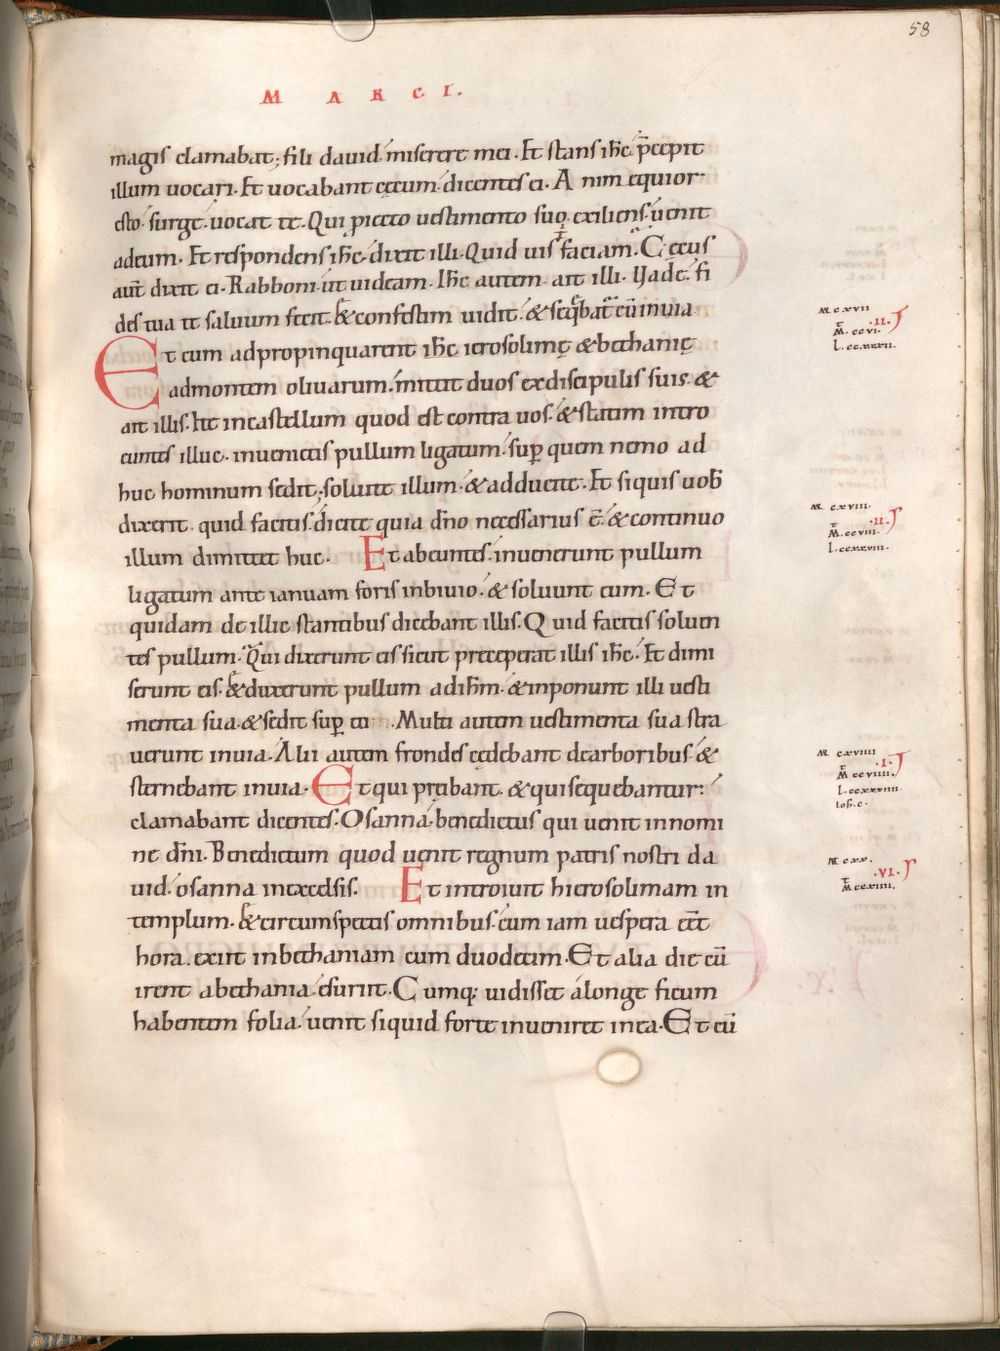 58
MARCI.
magis clamabat; fili dauid miserere mei. Et stans ihc p̄cepit
illum uocari. Et uocabant cęcum dicentes ei. A nim equior
esto. surge. uocat te. Qui proiecto uestimento suo exiliens uenit
adeum. Et respondens ihc. dixit illi. Quid uis t̄ faciam. Cęcus
aut̄ dixit ei. Rabboni ut uideam. Ihc autem ait illi. Uade. fi
des tua te saluum fecit. & confestim uidit. & seq̄bat̄ eū inuia
Et cum adpropinquarent ihc ierosolimę & bethanię
admontem oliuarum. mittit duos exdiscipulis suis. &
ait illis. Ite incastellum quod est contra uos. & statim intro
euntes illuc. inuenietis pullum ligatum. sup̄ quem nemo ad
huc hominum sedit; soluite illum. & adducite. Et siquis uob̄
dixerit. quid facitis. dicite quia dn̄o necessarius ē. & continuo
illum dimittet huc. Et abeuntes. inuenerunt pullum
ligatum ante ianuam foris inbiuio. & soluunt eum. Et
quidam de illic stantibus dicebant illis. Quid facitis soluen
tes pullum. Qui dixerunt eis sicut preceperat illis ihc. Et dimi
serunt eis. & duxerunt pullum adihm̄. & inponunt illi uesti
menta sua. & sedit sup̄ eū. Multi autem uestimenta sua stra
uerunt inuia. Alii autem frondes cędebant dearboribus. &
sternebant inuia. Et qui pręibant. & quisequebantur:
clamabant dicentes. Osanna. benedictus qui uenit innomi
ne dn̄i. Benedictum quod uenit regnum patris nostri da
uid. osanna inexcelsis. Et introiuit hierosolimam in
templum. & circumspectis omnibus. cum iam uespera eēt
hora. exiit inbethaniam cum duodecim. Et alia die cū
irent abethania. esuriit. Cumq; uidisset alonge ficum
habentem folia. uenit siquid forte inueniret inea. Et cū
M cxvii
.II.
M. ccvi.
L. ccxxxii.
M cxviii.
.II.
M. ccviii.
L. ccxxxiii.
M cxviiii
.I.
M ccviiii.
L. ccxxxiiii.
Ioh̄. c.
M cxx.
.VI.
M ccxiiii.